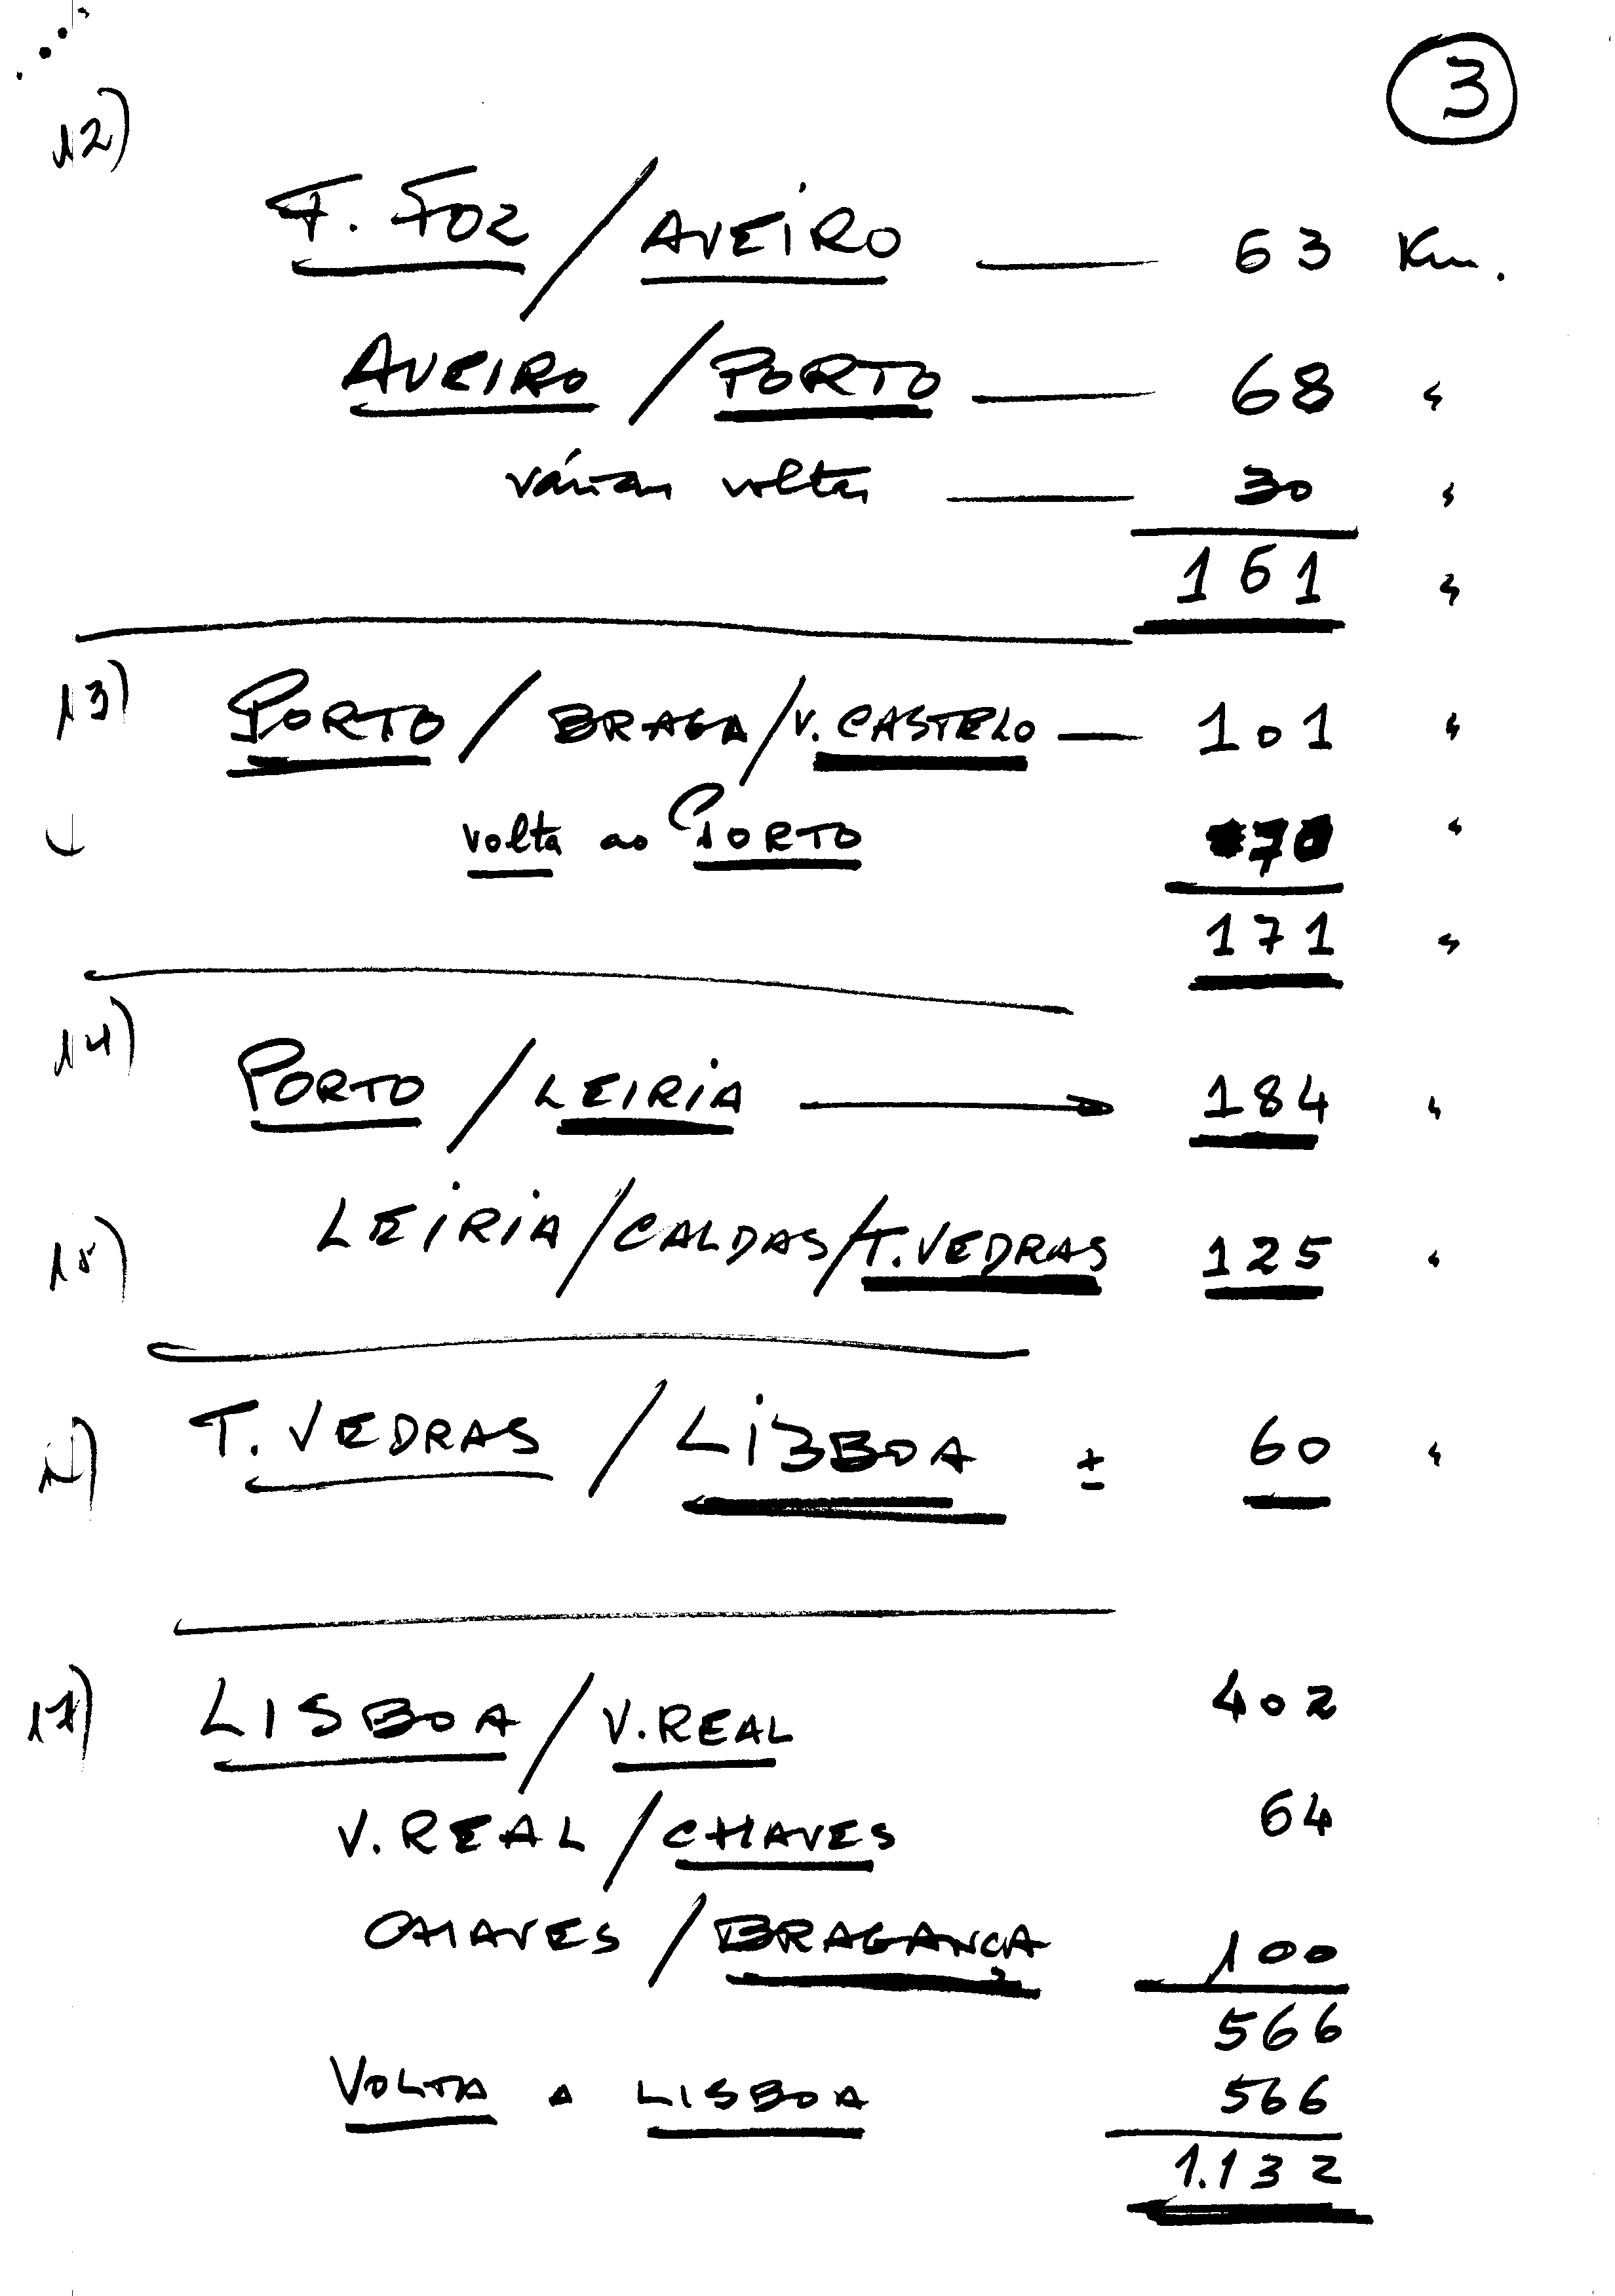 3
12)
F. FOZ / AVEIRO — 63 Km.
AVEIRO / PORTO — 68 "
várias voltas — 30 "
161 "
13) PORTO / BRAGA / V. CASTELO — 101 "
volta ao PORTO 70 "
171 "
14)
PORTO / LEIRIA → 184 "
15) LEIRIA / CALDAS / T. VEDRAS 125 "
T. VEDRAS / LISBOA ± 60 "
17) LISBOA / V. REAL 402
V. REAL / CHAVES 64
CHAVES / BRAGANÇA 100
566
VOLTA A LISBOA 566
1.132